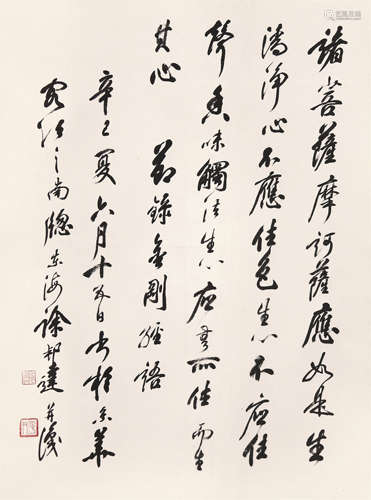 諸菩薩摩訶薩應如是生
清淨心不應住色生心不應住
聲香味觸法生心應無所住而生
其心 節錄金剛經語
辛 夏六月十 日書於京華
之南牕東海徐邦達并識